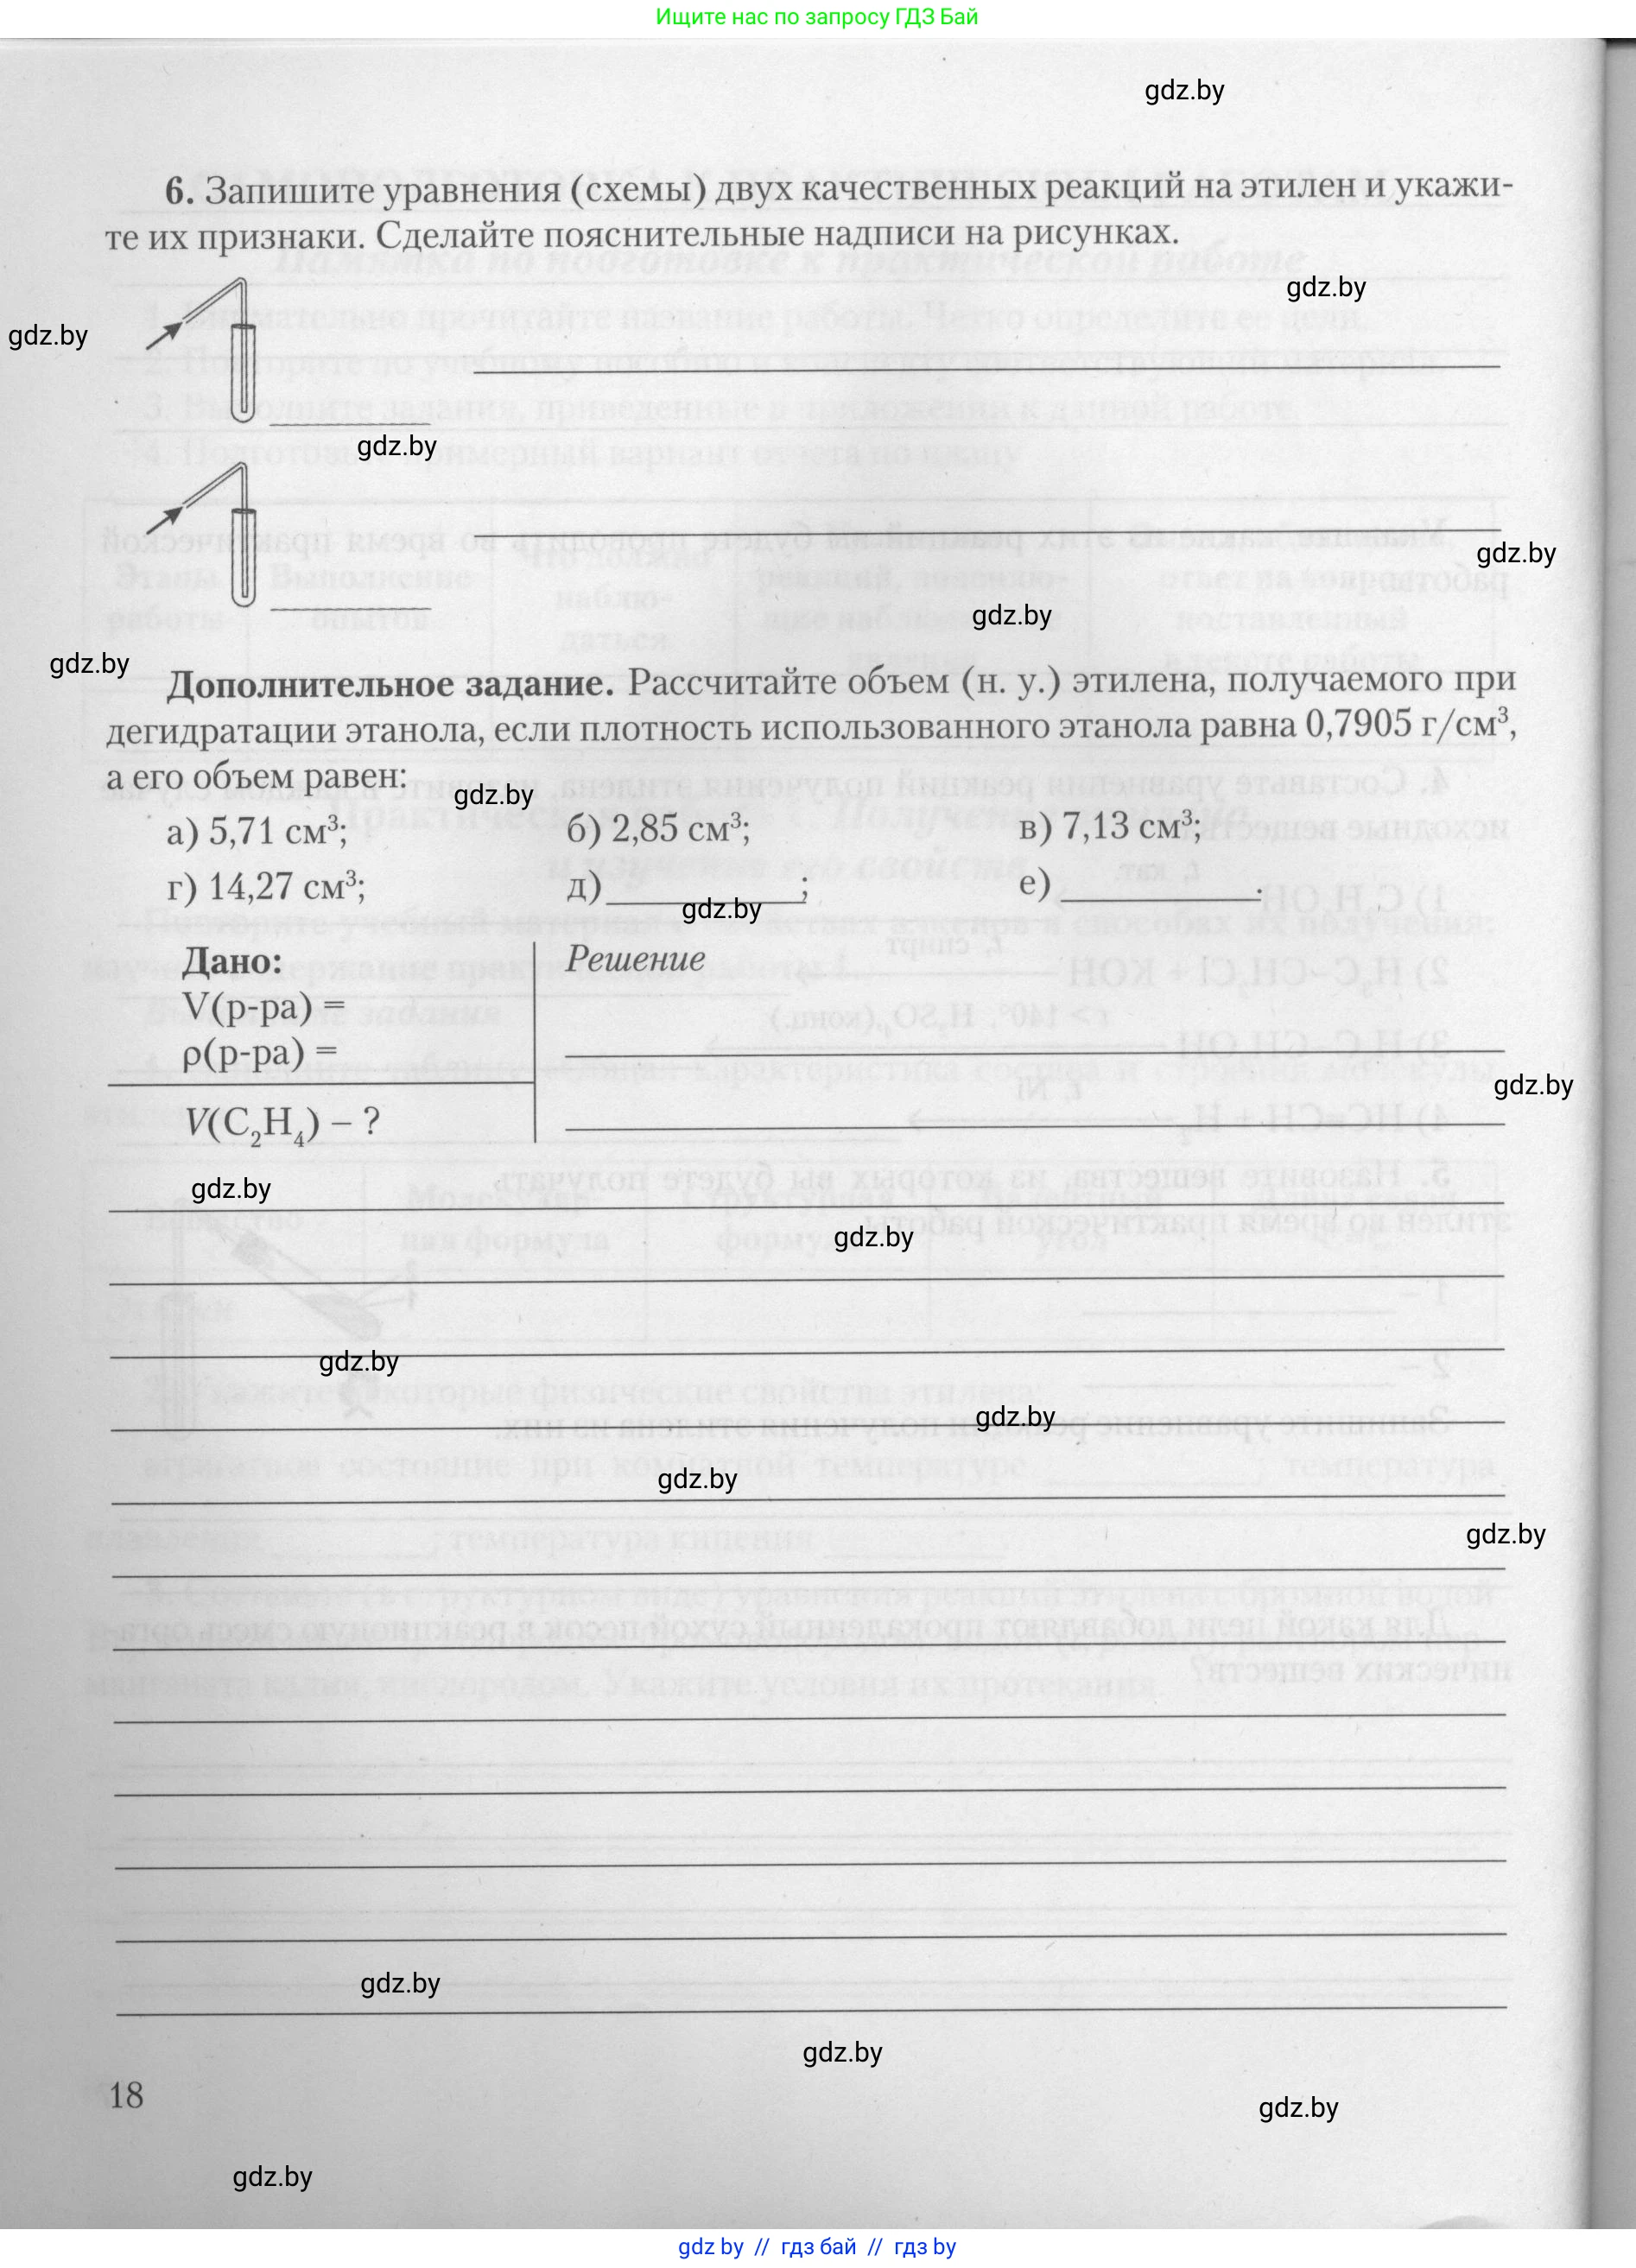 Ищите нас по запросу ГДЗ Бай
gdz.by
6. Запишите уравнения (схемы) двух качественных реакций на этилен и укажи-
те их признаки. Сделайте пояснительные надписи на рисунках.
gdz.by
gdz.by
gdz.by
gdz.by
gdz.by
gdz.by
Дополнительное задание. Рассчитайте объем (н. у.) этилена, получаемого при
дегидратации этанола, если плотность использованного этанола равна 0,7905 г/см³,
а его объем равен:
gdz.by
а) 5,71 см³; б) 2,85 см³; в) 7,13 см³;
г) 14,27 см³; д) ; е) .
gdz.by
Дано: Решение
V(р-ра) =
ρ(р-ра) =
gdz.by
V(C₂H₄) – ?
gdz.by
gdz.by
gdz.by
gdz.by
gdz.by
gdz.by
gdz.by
gdz.by
18
gdz.by
gdz.by
gdz by // гдз бай // гдз by